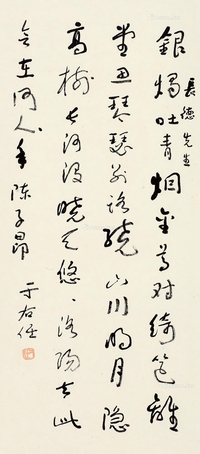 長德先生
銀燭吐青烟金尊对綺筵離
堂思琴瑟别路繞山川明月隐
高樹長河没曉天悠〻洛陽去此
會在何年 陳子昂
于右任